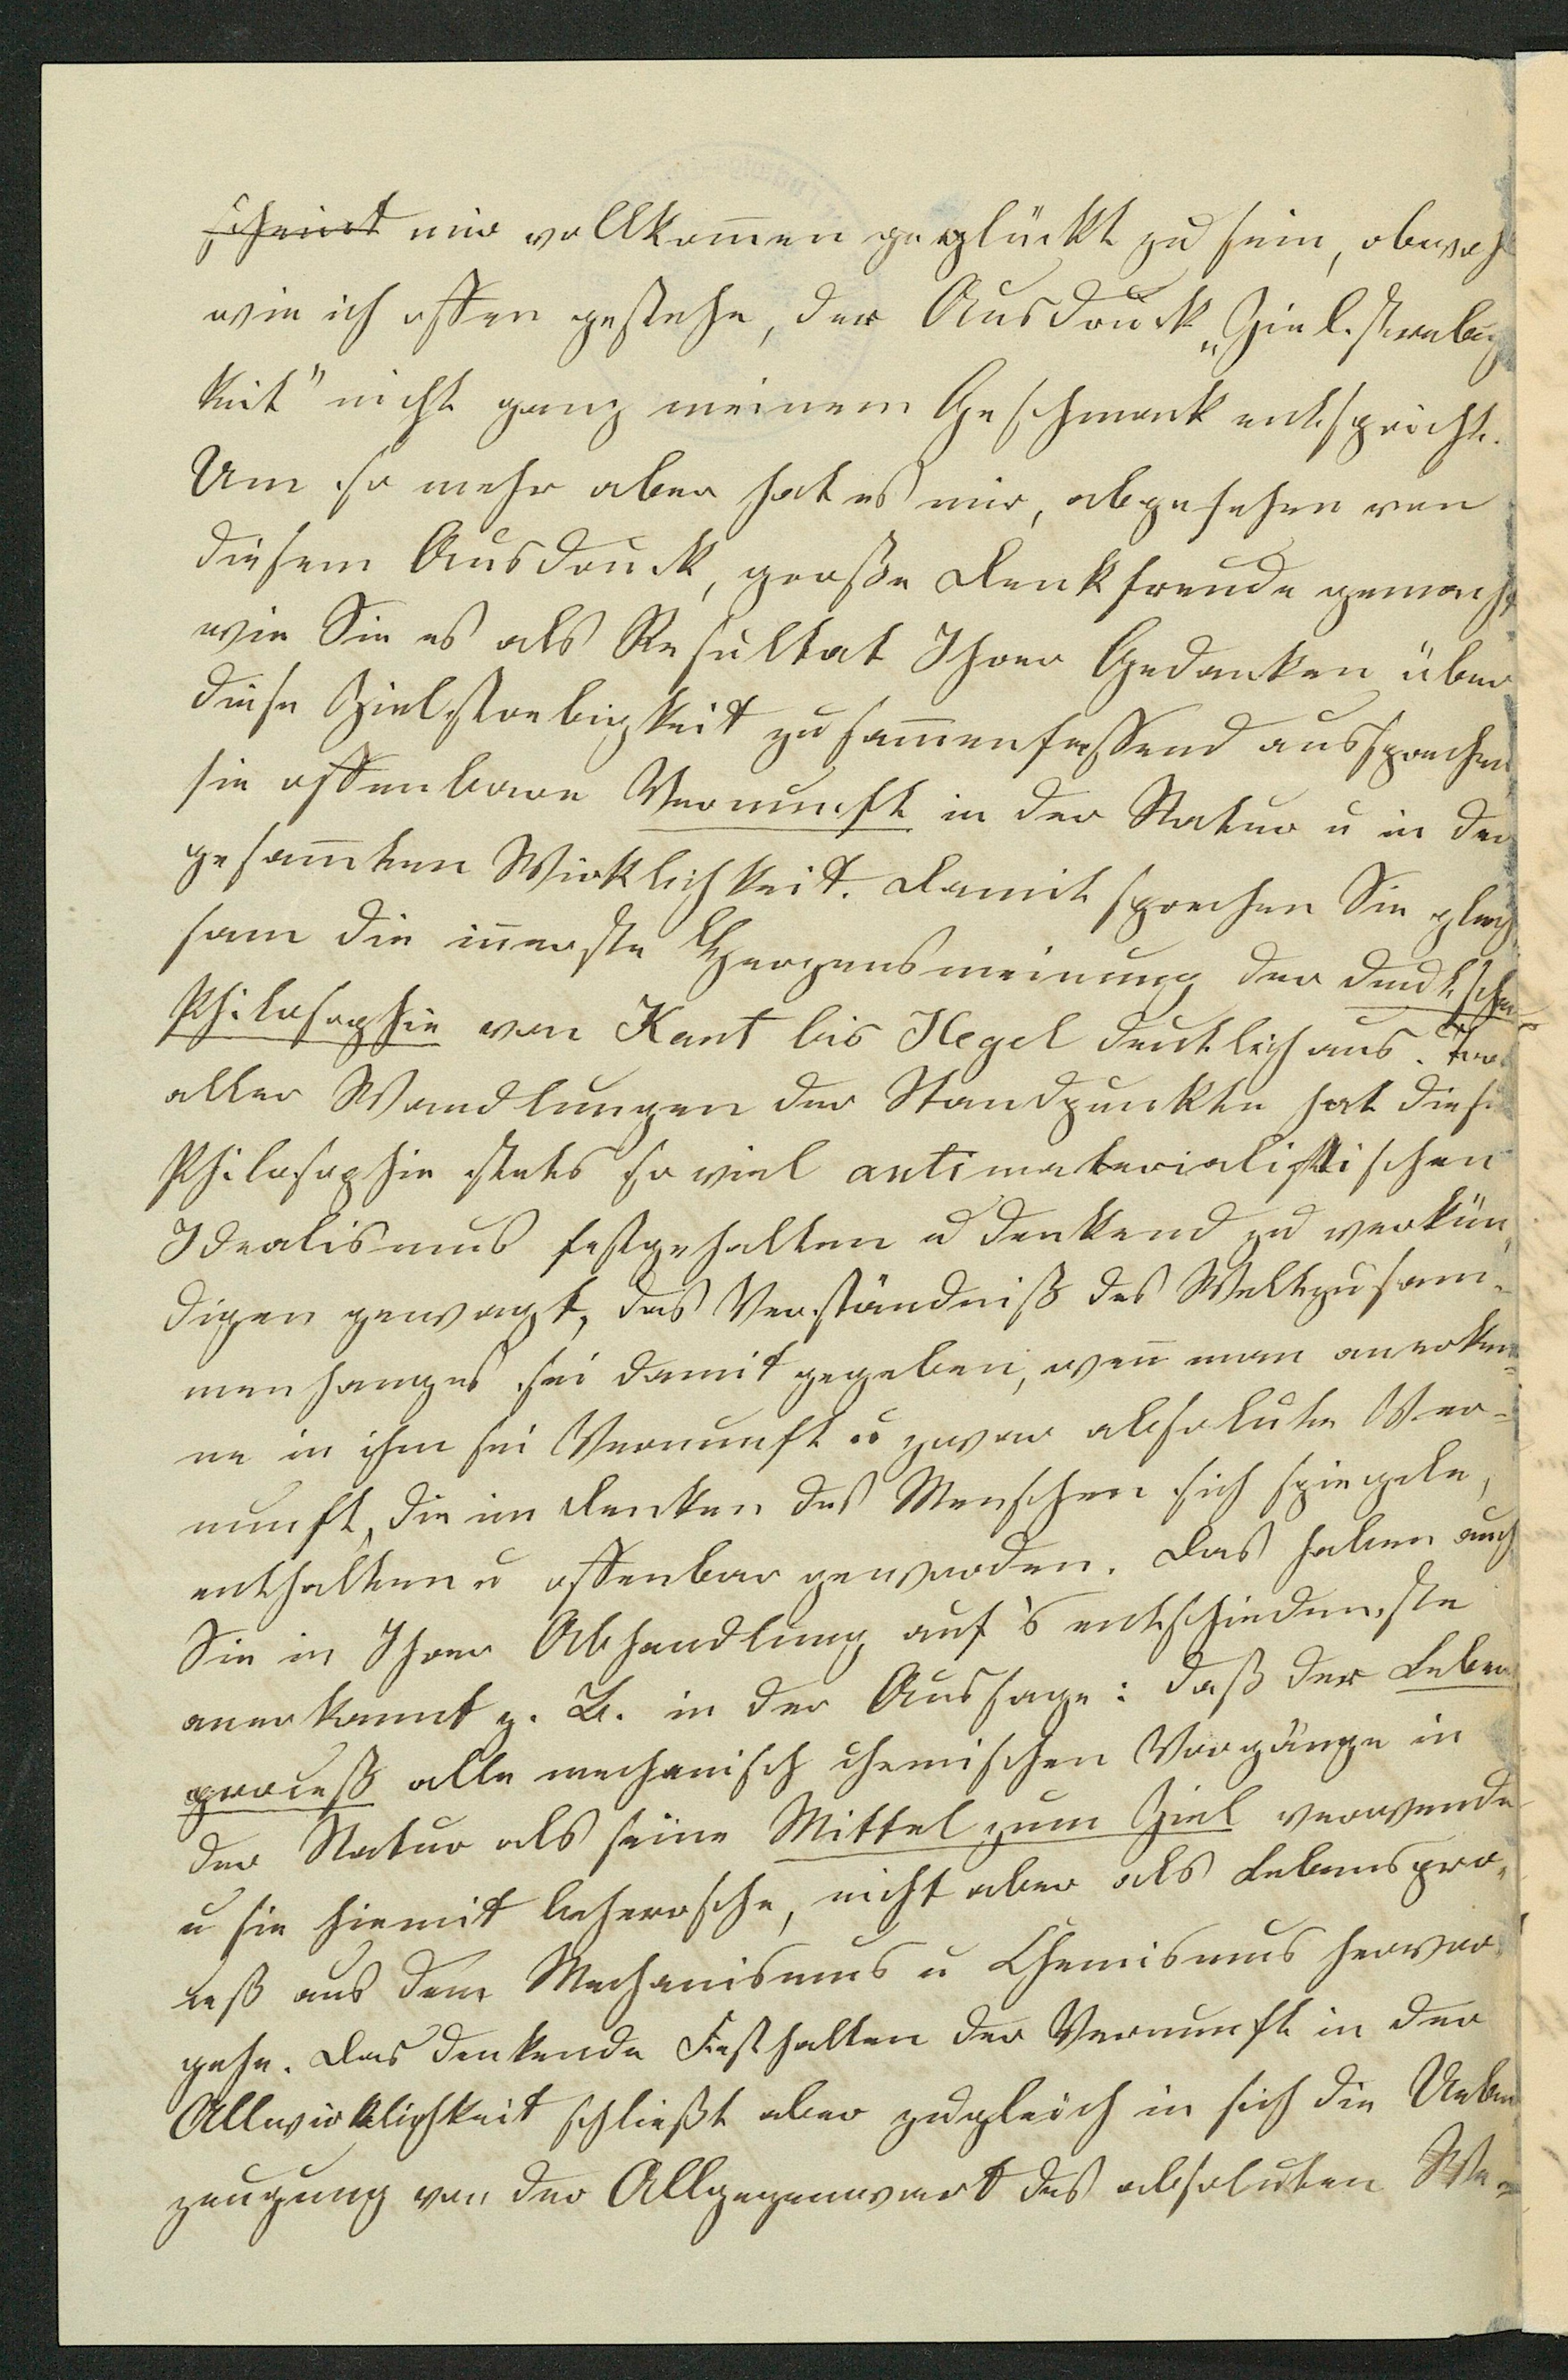 scheint mir vollkom̅en geglückt zu sein, obwohl
wie ich offen gestehe, der Ausdruck „Zielstrebig
keit" nicht ganz meinem Geschmack entspricht.
Um so mehr aber hat es mir, abgesehen von
diesem Ausdruck, große Denkfreude gemacht
wie Sie es als Resultat Ihrer Gedanken über
diese Zielstrebigkeit zusam̅enfassend aussprechen
sie offenbare Vernunft in der Natur u in der
gesam̅ten Wirklichkeit. Damit sprechen Sie gleich
sam die in̅erste Herzensmeinung der deutschen
Philosophie von Kant bis Hegel deutlich aus. Trotz
aller Wandlungen der Standpunkte hat diese
Philosophie stets so viel antimaterialistischen
Idealismus festgehalten u denkend zu verkün-
digen gewagt, das Verständniß des Weltzusam-
menhanges sei damit gegeben, wen̅ man anerken-
ne in ihm sei Vernunft u zwar absolute Ver-
nunft, die im Denken des Menschen sich spiegele,
enthalten u offenbar geworden. Das haben auch
Sie in Ihrer Abhandlung auf's entschiedenste
anerkannt z. B. in der Aussage: daß der Lebens
proceß alle mechanisch chemischen Vorgänge in
der Natur als seine Mittel zum Ziel verwende
u sie hiemit beherrsche, nicht aber als Lebenspro-
ceß aus dem Mechanismus u Chemismus hervor
gehe. Das denkende Festhalten der Vernunft in der
Allwirklichkeit schließt aber zugleich in sich die Ueber
zeugung von der Allgegenwart des absoluten We-